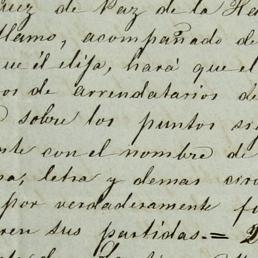 uez de Paz de la Ha
llamo, acompañado de
ue él elija, hará que el
os de arrendatarios de
sobre los puntos si
nte con el nombre de
a, letra y demas cir
por verdaderamente f
ren sus partidas.=